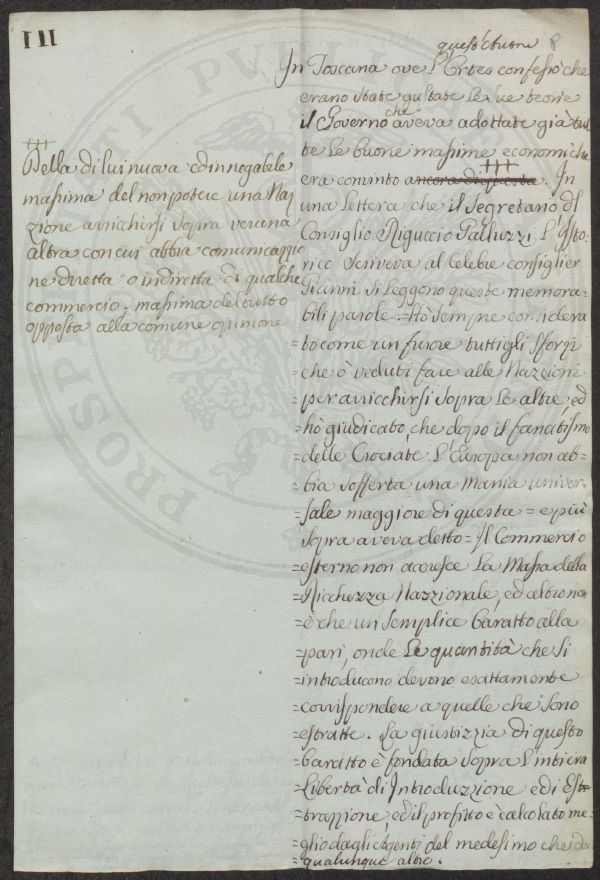 III
quest'ultimo 8
In Toscana ove l'Ortes confessò che
erano state gustate le sue teorie
che
il Governo aveva adottate già tut
te le buone massime economiche
†††
era convinto ancora di questa. In
una Lettera che il Segretario del
Consiglio Riguccio Galluzzi l'Isto-
rico scriveva al Celebre Consiglier
Gianni si leggono queste memora-
bili parole = Hò sempre considera
to come un furore tutti gli sforzi
che ò veduti fare alle Nazzioni
= per arricchirsi sopra le altre, ed
= hò giudicato, che dopo il fanatismo
= delle Crociate l'Europa non ab-
= bia sofferta una Mania univer
= sale maggiore di questa = e più
sopra aveva detto = Il Commercio
= esterno non accresce la Massa della
= Ricchezza Nazzionale, ed altro non
= è che un semplice baratto alla
= pari, onde le quantità che si
= introducono devono esattamente
= corrispondere a quelle che sono
= estratte. La giustizzia di questo
= baratto è fondata sopra l'intiera
= Libertà di Introduzzione e di Est-
= trazzione, ed il profitto è calcolato me-
= glio dagli Agenti del medesimo che da
= qualunque altro.
†††
Della di lui nuova ed innegabile
massima del non potere una Naz
zione arricchirsi sopra veruna
altra con cui abbia comunicazzio
ne diretta o indiretta di qualche
commercio; massima del tutto
opposta alla comune opinione
PROSPERITATI PVBLI